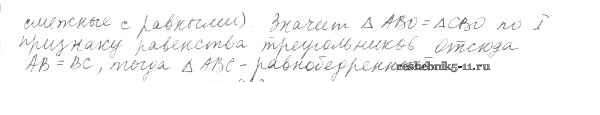 смежные с равными). Значит △ ABO = △CBO по I
признаку равенства треугольников. Отсюда
AB = BC, тогда △ ABC - равнобедренный.
reshebnik5-11.ru